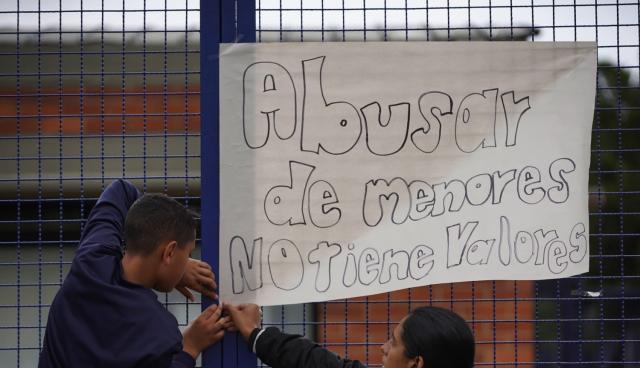 Abusar
de menores
NO tiene Valores